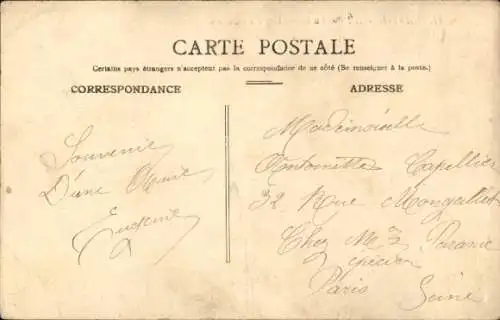 CARTE POSTALE
Certains pays étrangers n'acceptent pas la correspondance de ce côté (Se renseigner à la poste.)
CORRESPONDANCE
ADRESSE
Souvenir
D'une Amie
Eugénie
Mademoiselle
Antoinette Capellier
32 Rue
Chez Mr
épicier
Paris Seine